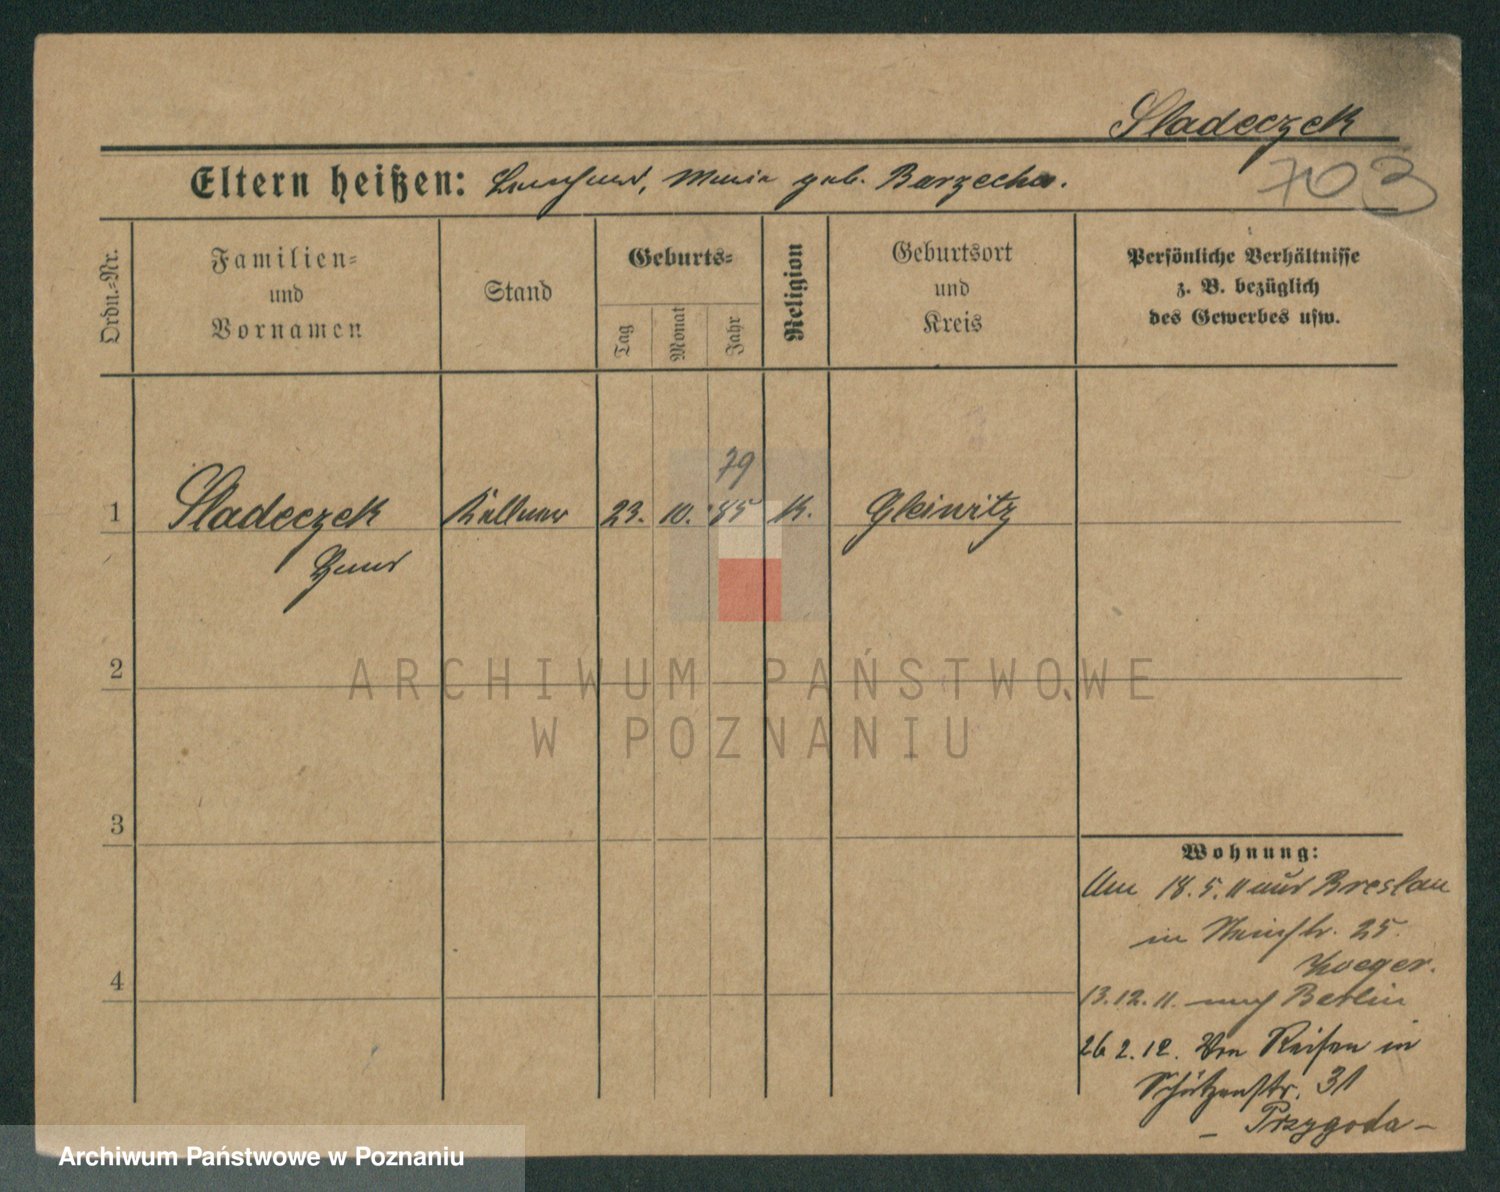 Sladeczek
703
Eltern heißen: Maria geb. Barzecha.
Ordn.-Nr.
Familien-
und
Vornamen
Stand
Geburts-
Tag
Monat
Jahr
Religion
Geburtsort
und
Kreis
Persönliche Verhältnisse
z. B. bezüglich
des Gewerbes usw.
79
1 Sladeczek Kellner 23. 10. 85 K. Gleiwitz
2
ARCHIWUM PAŃSTWOWE
W POZNANIU
3
4
Wohnung:
Am 18.5.11 aus Breslau
in 25.
13.12.11. nach Berlin
26 2.12. Von Reisen in
Schützenstr. 31
- Przygoda -
Archiwum Państwowe w Poznaniu